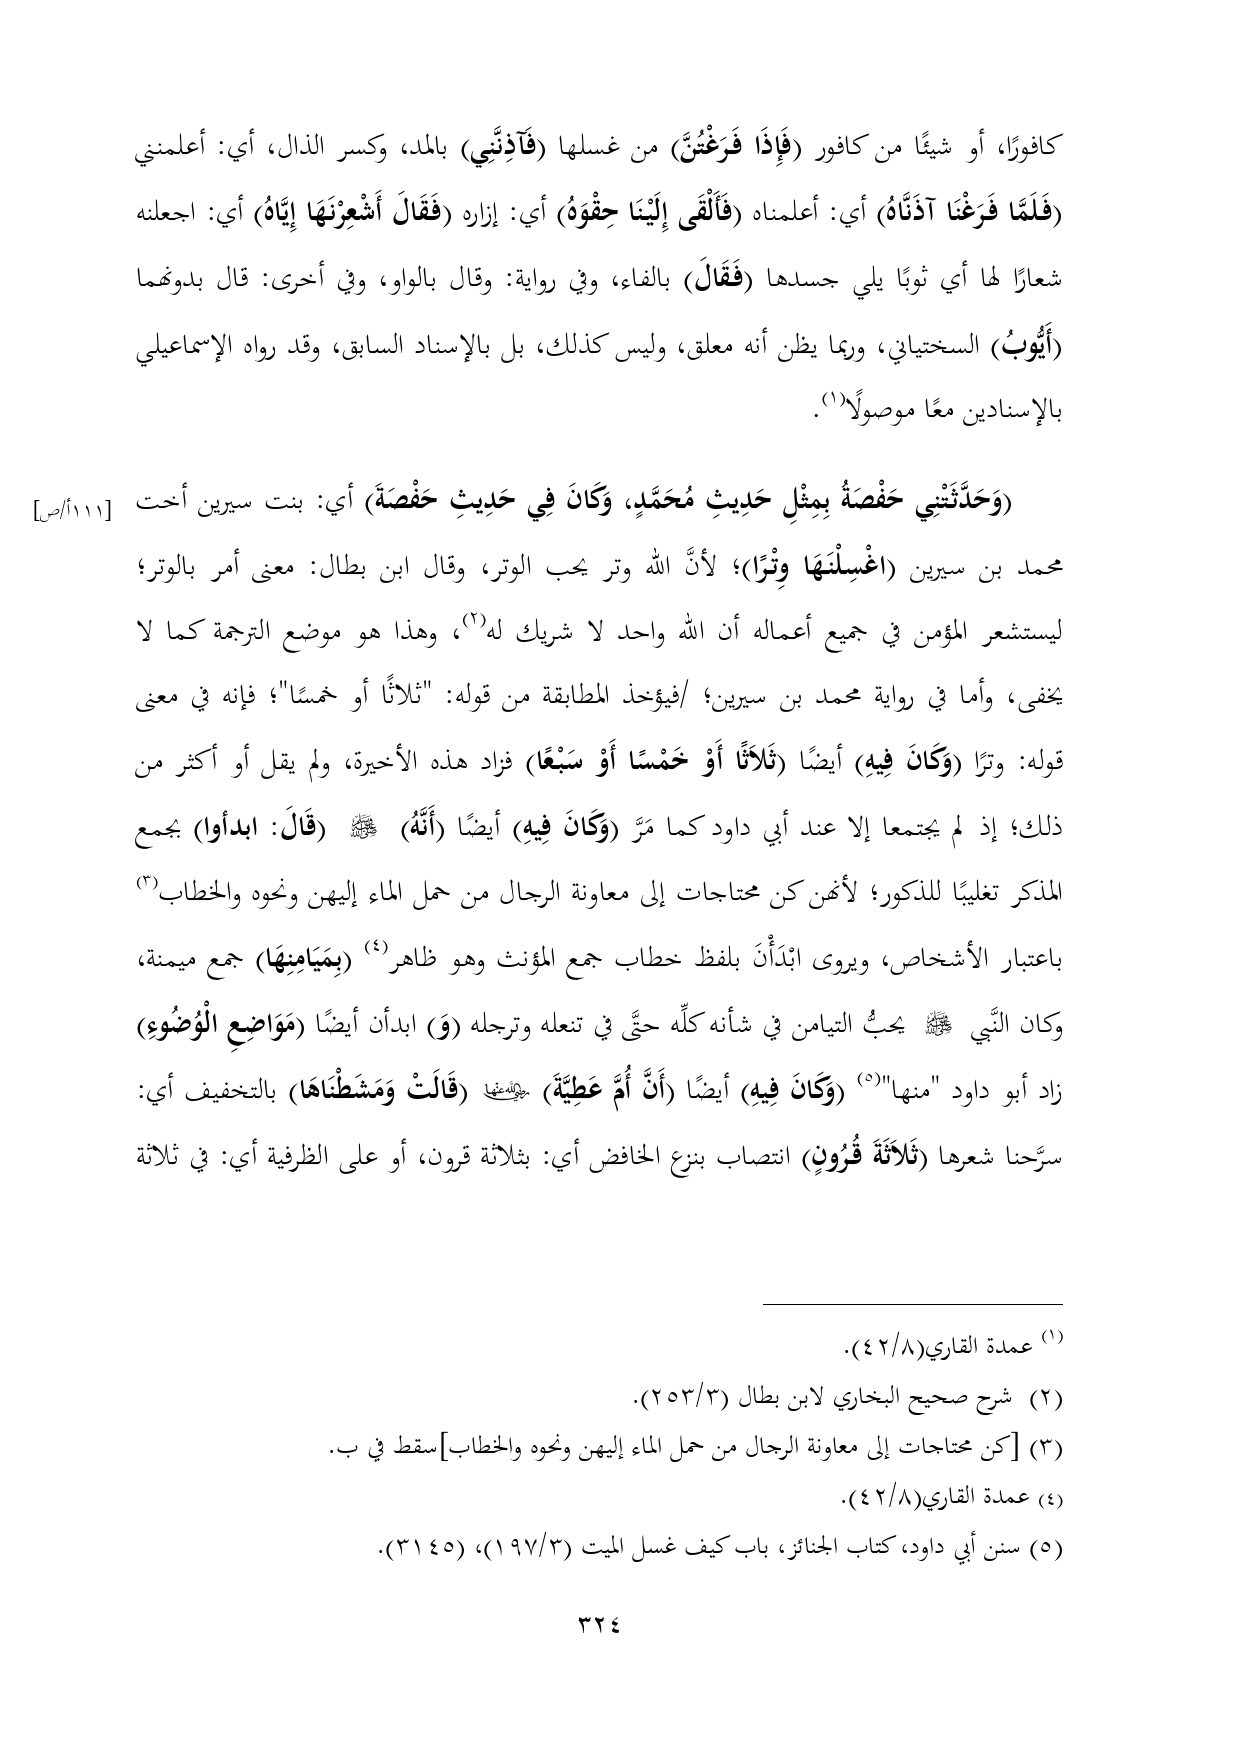 كافورًا، أو شيئًا من كافور (فَإِذَا فَرَغْتُنَّ) من غسلها (فَآذِنَّنِي) بالمد، وكسر الذال، أي: أعلمنني
(فَلَمَّا فَرَغْنَا آذَنَّاهُ) أي: أعلمناه (فَأَلْقَى إِلَيْنَا حِقْوَهُ) أي: إزاره (فَقَالَ أَشْعِرْنَهَا إِيَّاهُ) أي: اجعلنه
شعارًا لها أي ثوبًا يلي جسدها (فَقَالَ) بالفاء، وفي رواية: وقال بالواو، وفي أخرى: قال بدونهما
(أَيُّوبُ) السختياني، وربما يظن أنه معلق، وليس كذلك، بل بالإسناد السابق، وقد رواه الإسماعيلي
بالإسنادين معًا موصولًا(١).
(وَحَدَّثَتْنِي حَفْصَةُ بِمِثْلِ حَدِيثِ مُحَمَّدٍ، وَكَانَ فِي حَدِيثِ حَفْصَةَ) أي: بنت سيرين أخت [١١١أ/ص]
محمد بن سيرين (اغْسِلْنَهَا وِتْرًا)؛ لأنَّ الله وتر يحب الوتر، وقال ابن بطال: معنى أمر بالوتر؛
ليستشعر المؤمن في جميع أعماله أن الله واحد لا شريك له(٢)، وهذا هو موضع الترجمة كما لا
يخفى، وأما في رواية محمد بن سيرين؛ /فيؤخذ المطابقة من قوله: "ثلاثًا أو خمسًا"؛ فإنه في معنى
قوله: وترًا (وَكَانَ فِيهِ) أيضًا (ثَلاَثًا أَوْ خَمْسًا أَوْ سَبْعًا) فزاد هذه الأخيرة، ولم يقل أو أكثر من
ذلك؛ إذ لم يجتمعا إلا عند أبي داود كما مَرَّ (وَكَانَ فِيهِ) أيضًا (أَنَّهُ) ﷺ (قَالَ: ابدأوا) بجمع
المذكر تغليبًا للذكور؛ لأنهن كن محتاجات إلى معاونة الرجال من حمل الماء إليهن ونحوه والخطاب(٣)
باعتبار الأشخاص، ويروى ابْدَأْنَ بلفظ خطاب جمع المؤنث وهو ظاهر(٤) (بِمَيَامِنِهَا) جمع ميمنة،
وكان النَّبي ﷺ يحبُّ التيامن في شأنه كلِّه حتَّى في تنعله وترجله (وَ) ابدأن أيضًا (مَوَاضِعِ الْوُضُوءِ)
زاد أبو داود "منها"(٥) (وَكَانَ فِيهِ) أيضًا (أَنَّ أُمَّ عَطِيَّةَ) رضي الله عنها (قَالَتْ وَمَشَطْنَاهَا) بالتخفيف أي:
سرَّحنا شعرها (ثَلاَثَةَ قُرُونٍ) انتصاب بنزع الخافض أي: بثلاثة قرون، أو على الظرفية أي: في ثلاثة
(١) عمدة القاري(٤٢/٨).
(٢) شرح صحيح البخاري لابن بطال (٢٥٣/٣).
(٣) [كن محتاجات إلى معاونة الرجال من حمل الماء إليهن ونحوه والخطاب]سقط في ب.
(٤) عمدة القاري(٤٢/٨).
(٥) سنن أبي داود، كتاب الجنائز، باب كيف غسل الميت (١٩٧/٣)، (٣١٤٥).
٣٢٤